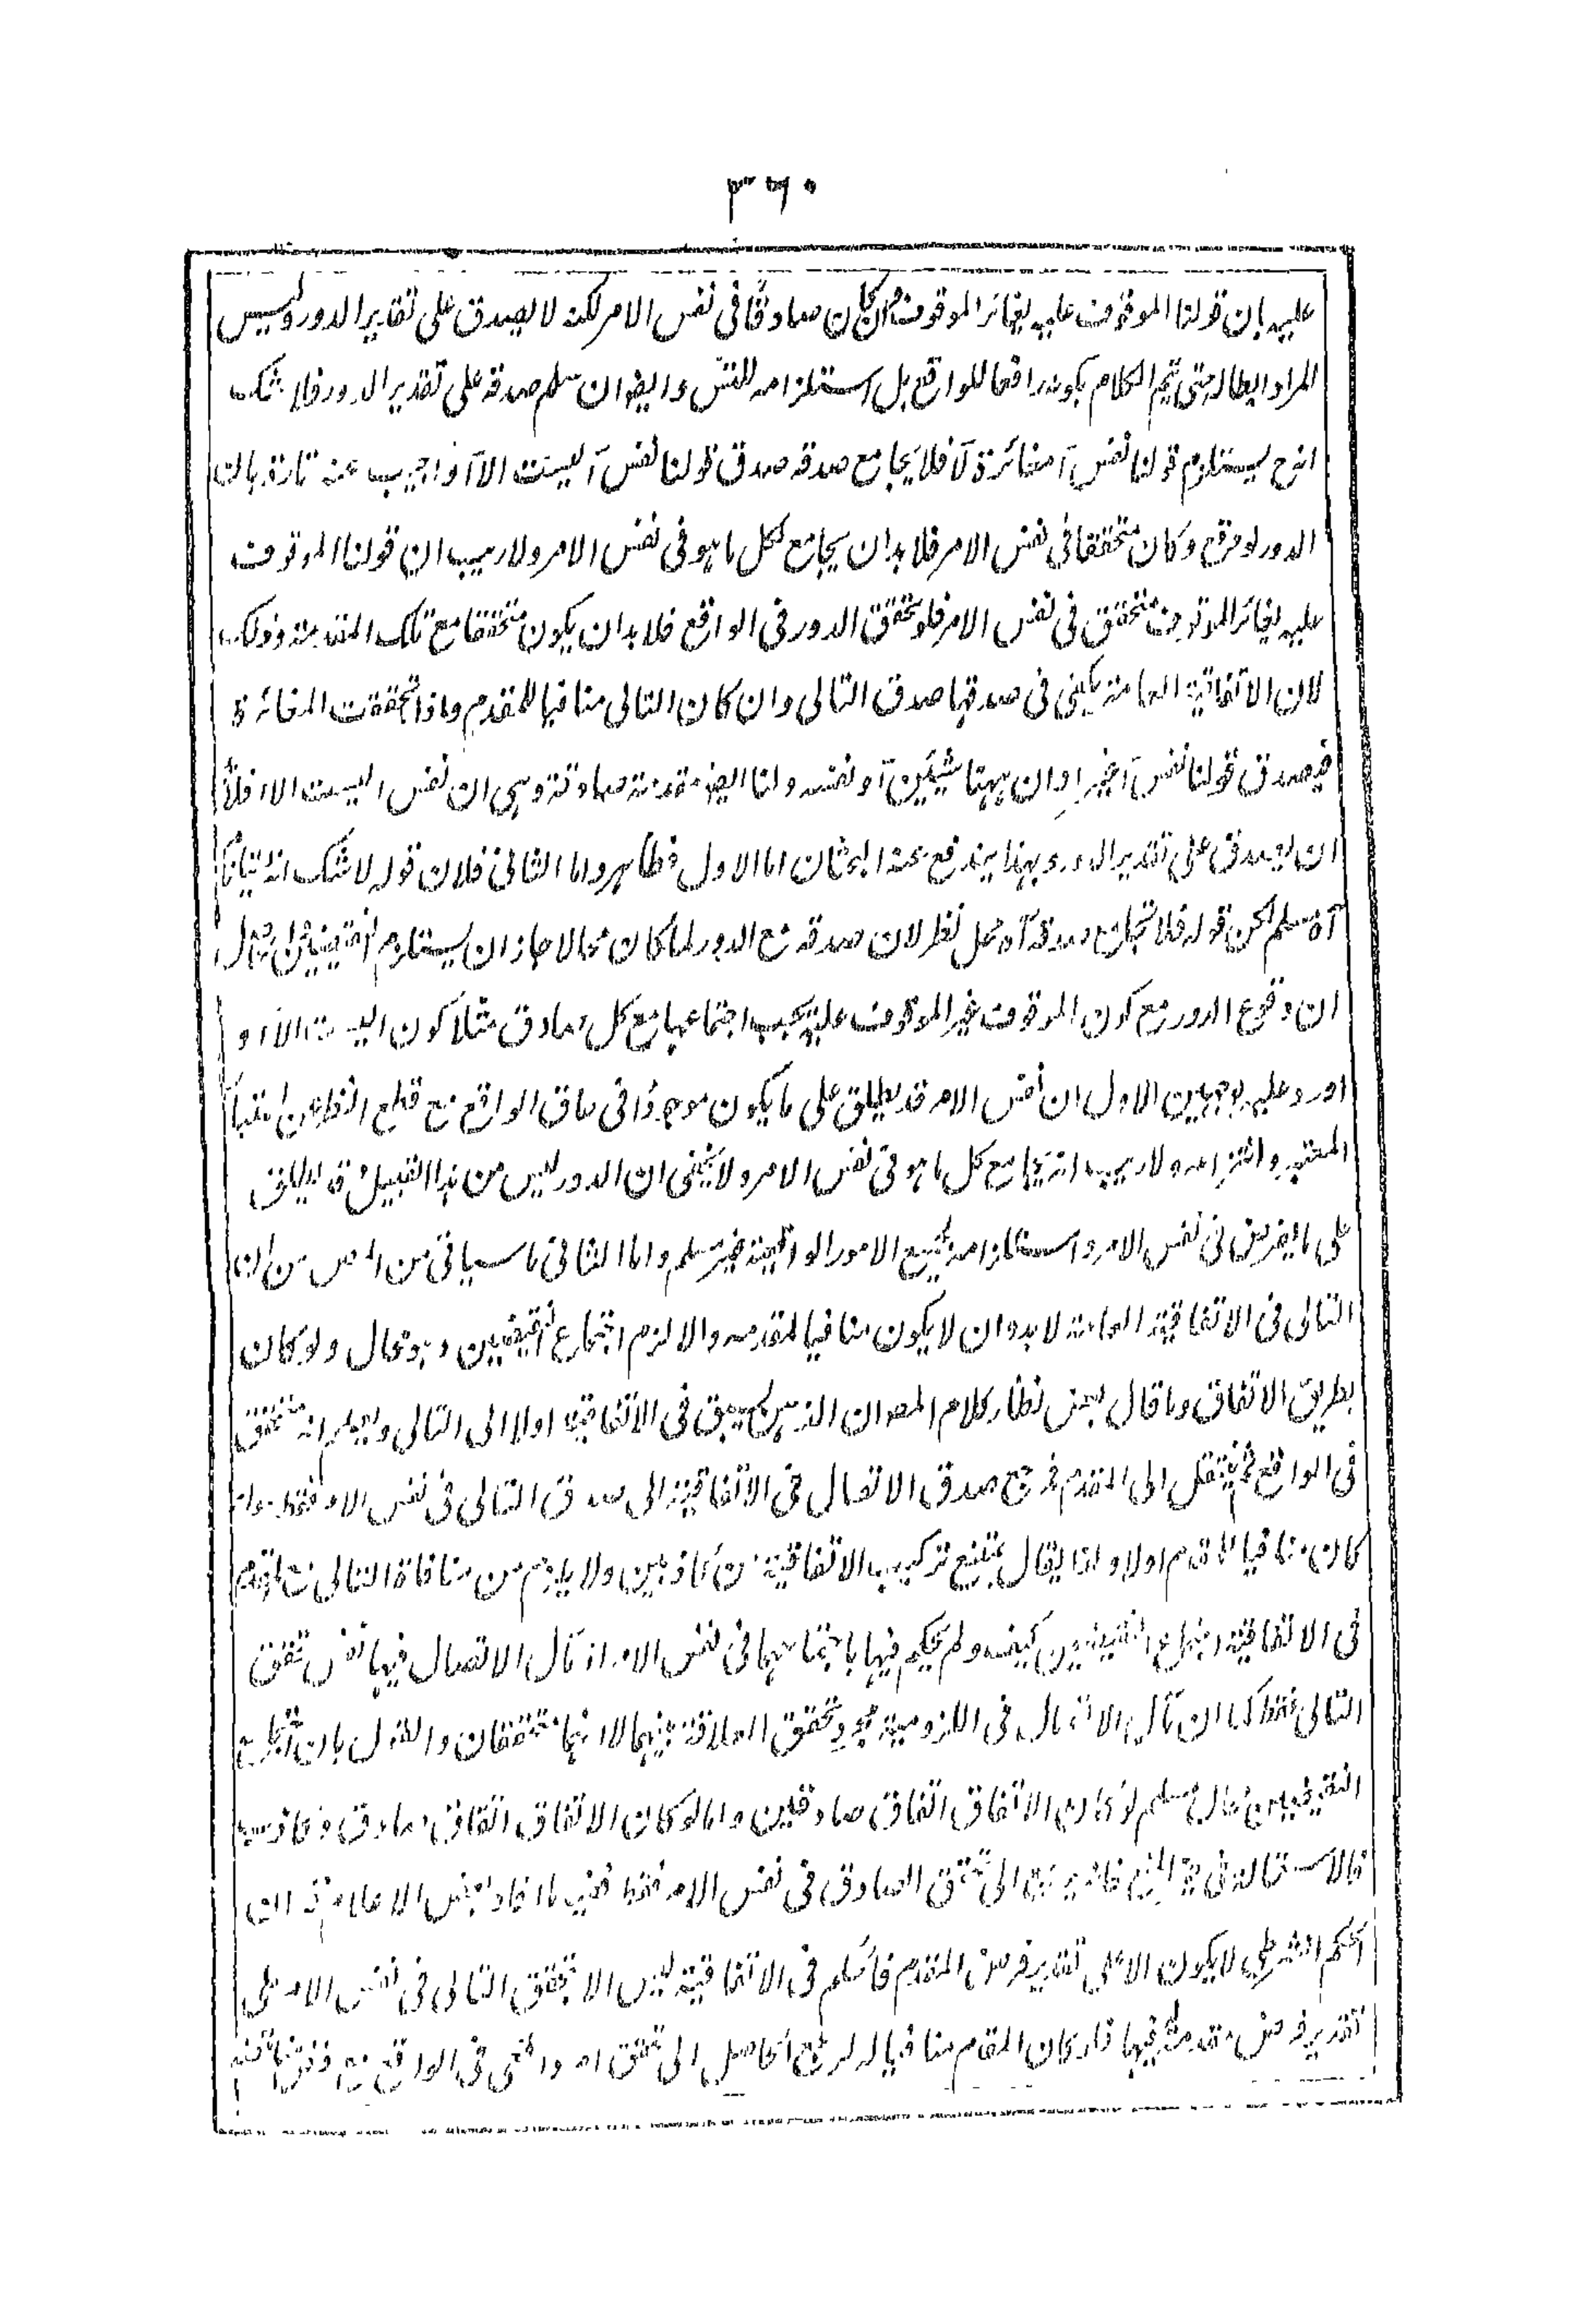 ٣٦٠
عليه بان قولنا الموقوف عليه يغائر الموقوف وان كان صادقا في نفس الامر لكنه لا يصدق على تقدير الدور وليس
المراد ابطاله حتى يتم الكلام بكونه رافعا للواقع بل استلزامه للتس وايضا ان سلم صدقه على تقدير الدور فلا شك
انه ح يستلزم قولنا نفس آ مغائرة لآ فلا يجامع صدقه صدق قولنا نفس آ ليست الا آ واجيب عنه تارة بان
الدور لو وقع وكان متحققا في نفس الامر فلا بد ان يجامع لكل ما هو في نفس الامر ولا ريب ان قولنا الموقوف
عليه يغائر الموقوف متحقق في نفس الامر فلو تحقق الدور في الواقع فلا بد ان يكون متحققا مع تلك المقدمة وذلك
لان الاتفاقية العامة يكفي في صدقها صدق التالي وان كان التالي منافيا للمقدم واذا تحققت المغائرة
فيصدق قولنا نفس آ غير ا وان ههنا شيئين آ ونفسه ولنا ايضا مقدمة صادقة وهي ان نفس ا ليست الا ا فلا
ان يصدق على تقدير الدور وبهذا يندفع عنه البحثان اما الاول فظاهر واما الثاني فلان قوله لا شك انه
آه مسلم لكن قوله فلا تجامع صدقه آه محل نظر لان صدقه مع الدور لما كان محالا جاز ان يستلزم النقيضين
ان وقوع الدور مع كون الموقوف غير الموقوف عليه يجب اجتماعها مع كل صادق مثلا كون ا ليست الا ا و
اورد عليه بوجهين الاول ان نفس الامر قد يطلق على ما يكون موجودا في حاق الواقع مع قطع النظر عن اعتبار
المعتبر وانتزاعه ولا ريب انه يجامع كل ما هو في نفس الامر ولا يخفى ان الدور ليس من هذا القبيل وقد يطلق
على ما يفرض في نفس الامر واستلزامه لجميع الامور الواقعية غير مسلم واما الثاني ما سياتي من المص من ان
التالي في الاتفاقية العامة لا بد وان لا يكون منافيا للمقدم والا لزم اجتماع النقيضين وهو محال ولو كان
بطريق الاتفاق وما قال بعض نظار كلام المص ان الذهن يسبق في الاتفاقية اولا الى التالي ويعلم انه متحقق
في الواقع ثم ينتقل الى المقدم فمرجع صدق الاتصال في الاتفاقية الى صدق التالي في نفس الامر فقط سواء
كان منافيا للمقدم اولا ولذا يقال يمتنع تركيب الاتفاقية من كاذبين ولا يلزم من منافاة التالي للمقدم
في الاتفاقية اجتماع النقيضين كيف ولم يحكم فيها باجتماعهما في نفس الامر اذ مآل الاتصال فيها نفس تحقق
التالي فقط كما ان مآل الاتصال في اللزومية مجرد تحقق العلاقة بينهما لا انهما متحققان والقول بان اجتماع
النقيضين محال مسلم لو كان الاتفاق اتفاق صادقين واما لو كان الاتفاق اتفاق صادق وكاذب
فالاستحالة في حيز المنع فانه يرجع الى تحقق الصادق في نفس الامر فقط ففيه ما افاد بعض الاعلام قد ان
الحكم الشرطي لا يكون الا على تقدير فرض المقدم فالحكم في الاتفاقية ليس الا بتحقق التالي في نفس الامر على
تقدير فرض مقدمه فيها فلو كان المقدم منافيا له لرجع الحاصل الى تحقق امر واقعي في الواقع مع